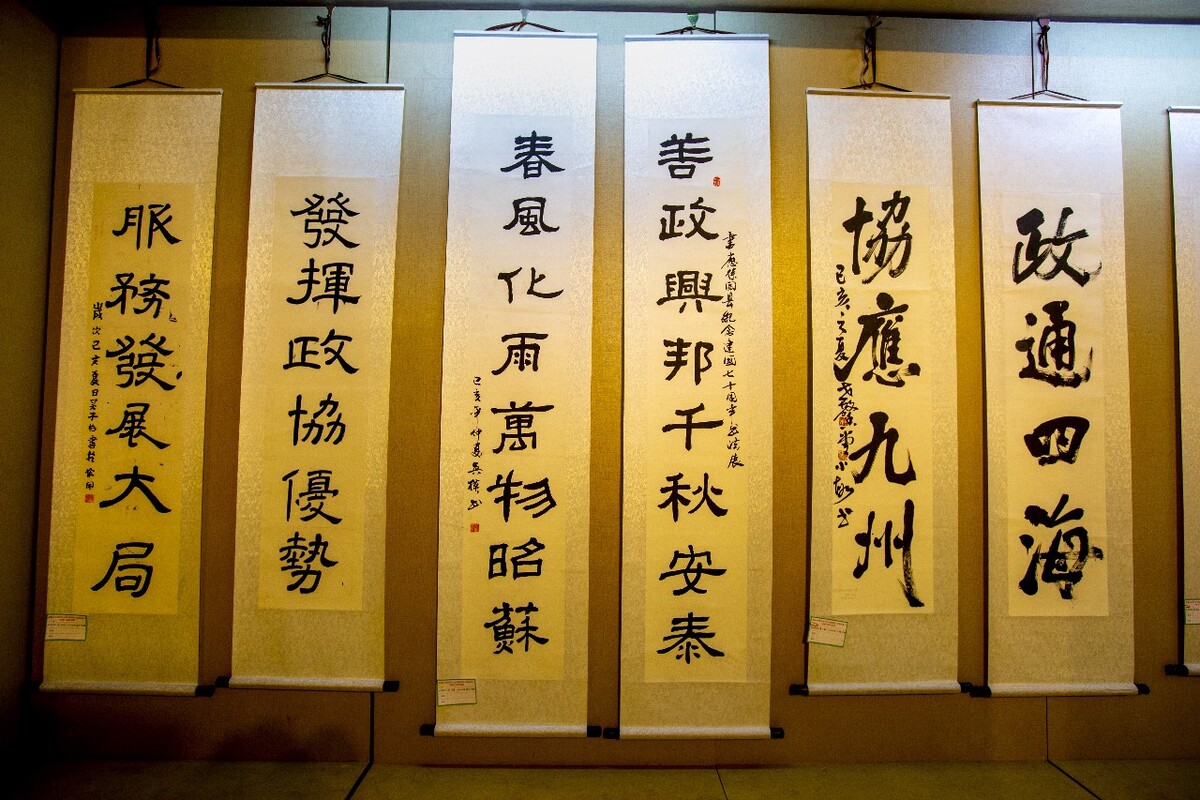 政通四海
協應九州
己亥之夏
善政興邦千秋安泰
紀念建國七十周年書法展
春風化雨萬物昭蘇
己亥年仲夏
發揮政協優勢
服務發展大局
歲次己亥夏日